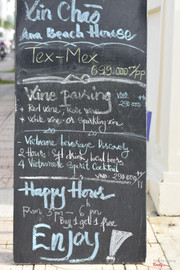 Xin Chào
Ana Beach House
Tex-Mex
699.000++/pp
Wine pairing
+ Red wine,
+ White wine or sparkling wine
Vietnamese beverage Discovery
2 Hours: Soft drink, local beers
4 Vietnamese Spirit Cocktail
Happy Hours
from 3pm - 6pm
Buy 1 get 1 free
Enjoy